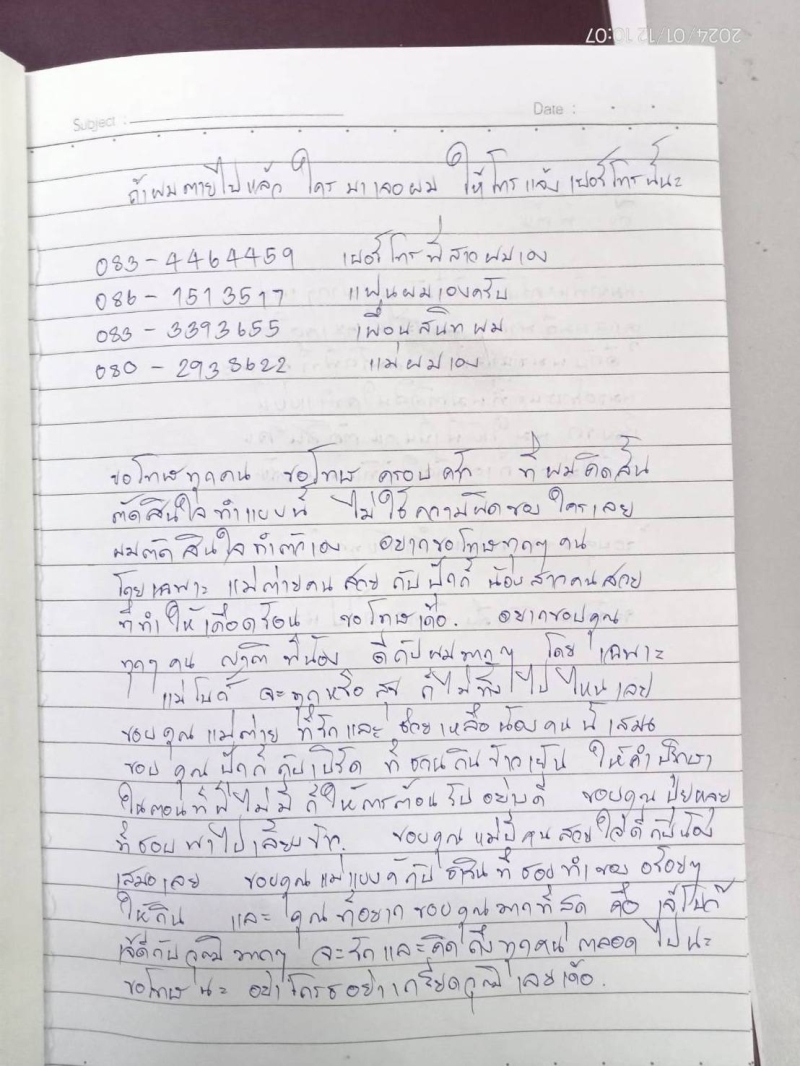 2024/01/12 10:07
Subject :
Date :
ถ้าผมตายไปแล้ว ใครมาเจอผม ให้โทรแจ้งเบอร์โทรนี้นะ
083-4464459 เบอร์โทรพี่สาวผมเอง
086-1513517 แฟนผมเองครับ
083-3393655 เพื่อนสนิทผม
080-2938622 แม่ผมเอง
ขอโทษทุกคน ขอโทษครอบครัว ที่ผมคิดสั้น
ตัดสินใจทำแบบนี้ ไม่ใช่ความผิดของใครเลย
ผมตัดสินใจทำตัวเอง อยากขอโทษทุกๆคน
โดยเฉพาะ แม่ต่ายคนสวย กับปุ๊กกี้ น้องสาวคนสวย
ที่ทำให้เดือดร้อน ขอโทษเด้อ. อยากขอบคุณ
ทุกๆคน ญาติพี่น้อง ดีกับผมมากๆ โดยเฉพาะ
แม่โบว์ จะทุกหรือสุข ก็ไม่ทิ้งไปไหนเลย
ขอบคุณแม่ต่าย ที่รักและช่วยเหลือน้องคนนี้เสมอ
ขอบคุณ กับเบิร์ด ที่ชวนกินข้าวเย็น ให้คำปรึกษา
ในตอนที่พี่ไม่มี ก็ให้การต้อนรับอย่างดี ขอบคุณปุยหลุย
ที่ชอบพาไปเลี้ยงข้าว. ขอบคุณแม่บีคนสวย ใจดีกับน้อง
เสมอเลย ขอบคุณแม่ กับ ที่ชอบทำของอร่อยๆ
ให้กิน และ คนที่อยากขอบคุณมากที่สุด คือ เจ๊โบว์
เจ๊ดีกับวุฒิมากๆ จะรักและคิดถึงทุกคนตลอดไปนะ
ขอโทษนะ อย่าโกรธอย่าเกลียดวุฒิเลยเด้อ.